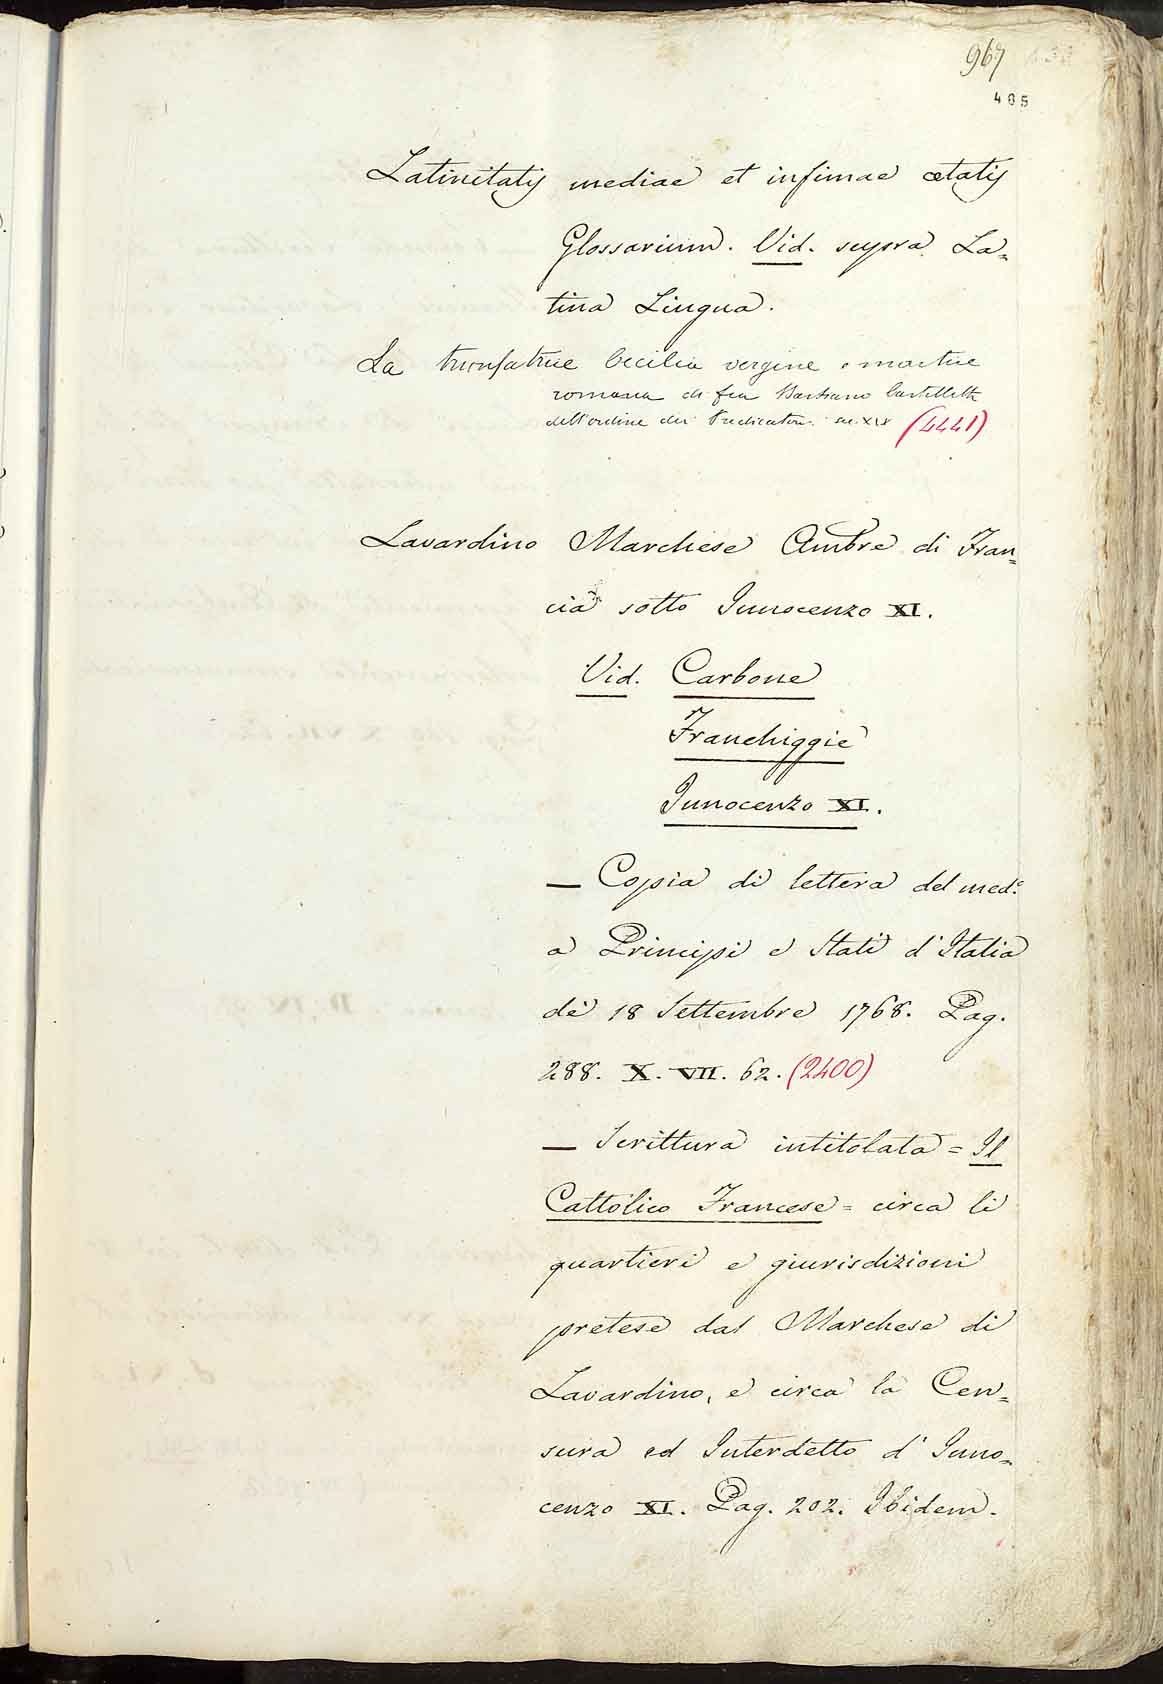 967
405
Latinitatis mediae et infimae ætatis
Glossarium. Vid. supra La=
tina Lingua.
La trionfatrice Cecilia vergine e martire
romana di fra Bastiano Castelletti
dell'ordine dei Predicatori. sec. XIX (4441)
Lavardino Marchese Ambre di Fran=
cia sotto Innocenzo XI.
Vid. Carbone
Franchiggie
Innocenzo XI.
— Copia di lettera del med.º
a Principi e Stati d'Italia
dè 18 Settembre 1768. Pag.
288. X. VII. 62. (2400)
— Scrittura intitolata = Il
Cattolico Francese = circa li
quartieri e giurisdizioni
pretese dal Marchese di
Lavardino, e circa la Cen=
sura ed Interdetto d'Inno=
cenzo XI. Pag. 202. Ibidem.